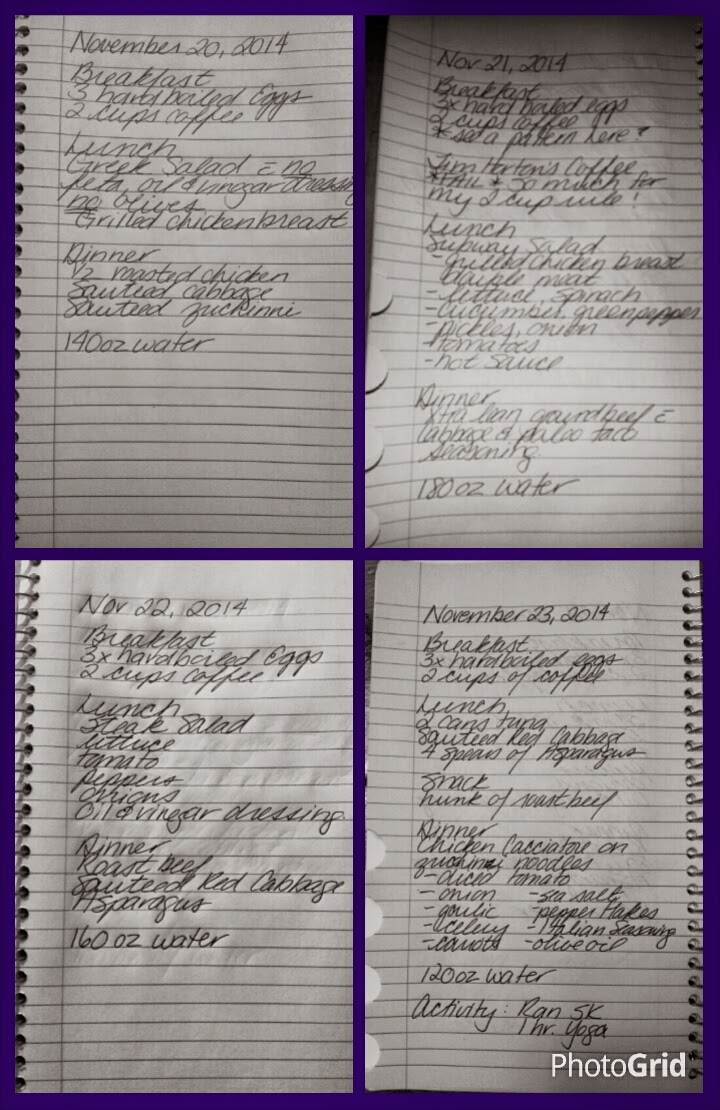 November 20, 2014
Breakfast
3 hard boiled Eggs
2 cups coffee
Lunch
Greek Salad = no
feta, oil & vinegar dressing
no olives
Grilled chicken breast
Dinner
1/2 roasted chicken
Sauteed cabbage
Sauteed zuckinni
140oz water
Nov 21, 2014
Breakfast
3x hard boiled eggs
2 cups coffee
*see a pattern here?
Tim Horton's Coffee
*FAIL* So much for
my 2 cup rule!
Lunch
Subway Salad
-grilled chicken breast
double meat
-lettuce, spinach
-cucumber, greenpepper
-pickles, onion
-tomatoes
-hot sauce
Dinner
Xtra lean ground beef =
cabbage & paleo taco
seasoning.
180oz water
Nov 22, 2014
Breakfast
3x hardboiled Eggs
2 cups coffee
Lunch
Steak Salad
lettuce
tomato
peppers
onions
oil & vinegar dressing.
Dinner
Roast beef
Sauteed Red Cabbage
Asparagus
160 oz water
November 23, 2014
Breakfast.
3x hardboiled eggs
2 cups of coffee
Lunch
2 cans tuna
Sauteed Red Cabbage
4 spears of Asparagus
Snack
hunk of roast beef
Dinner
Chicken Cacciatore on
zuckinni noodles
-diced tomato
-onion -sea salt
-garlic -pepper flakes
-celery -Italian Seasoning
-carrots -olive oil
120oz water
Activity: Ran 5K
1 hr. Yoga
PhotoGrid